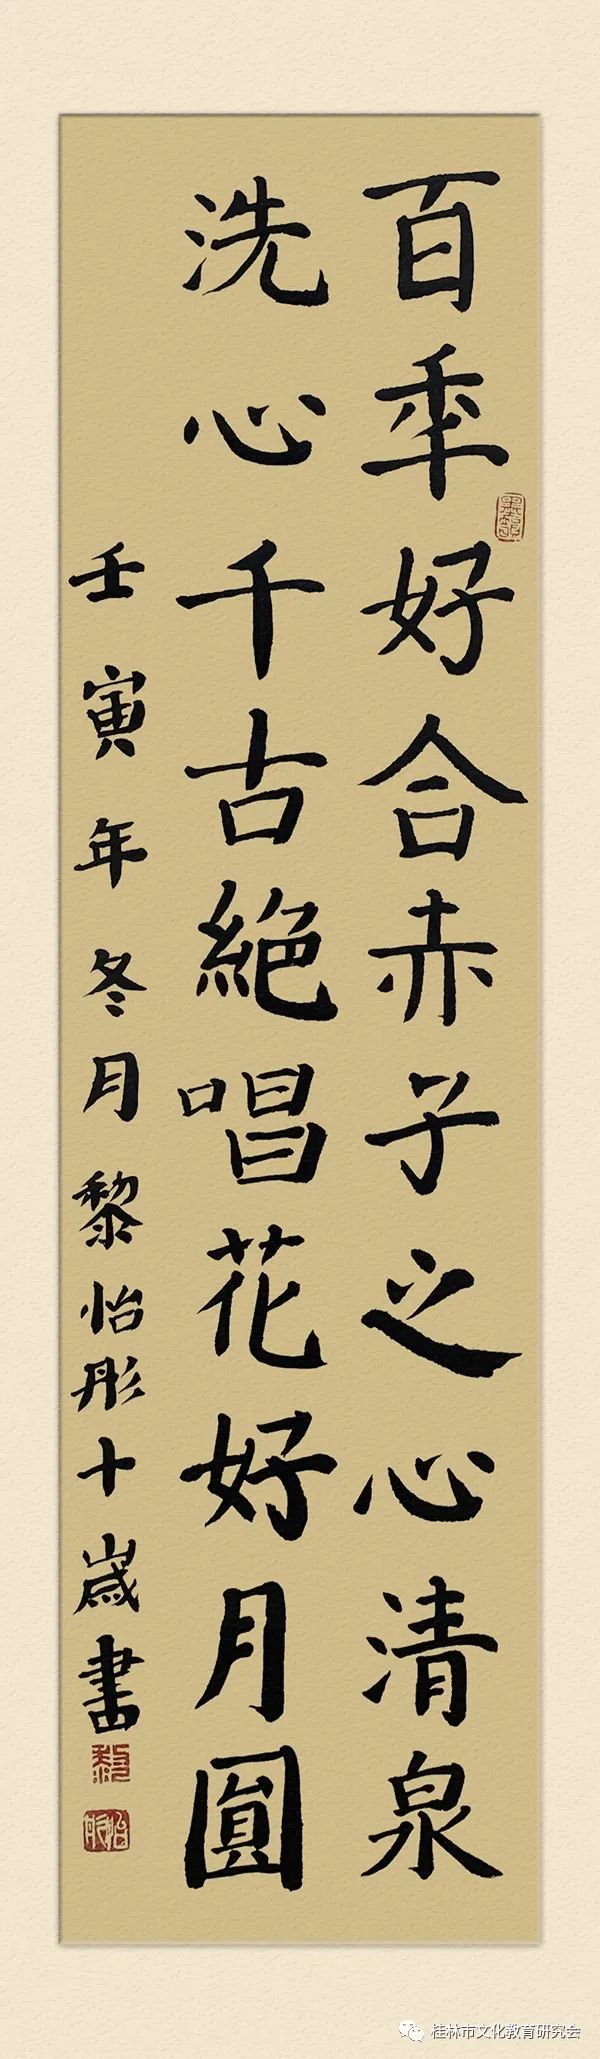 百年好合赤子之心清泉
洗心千古絶唱花好月圓
壬寅年冬月黎怡彤十歲書
黎
怡彤
桂林市文化教育研究会